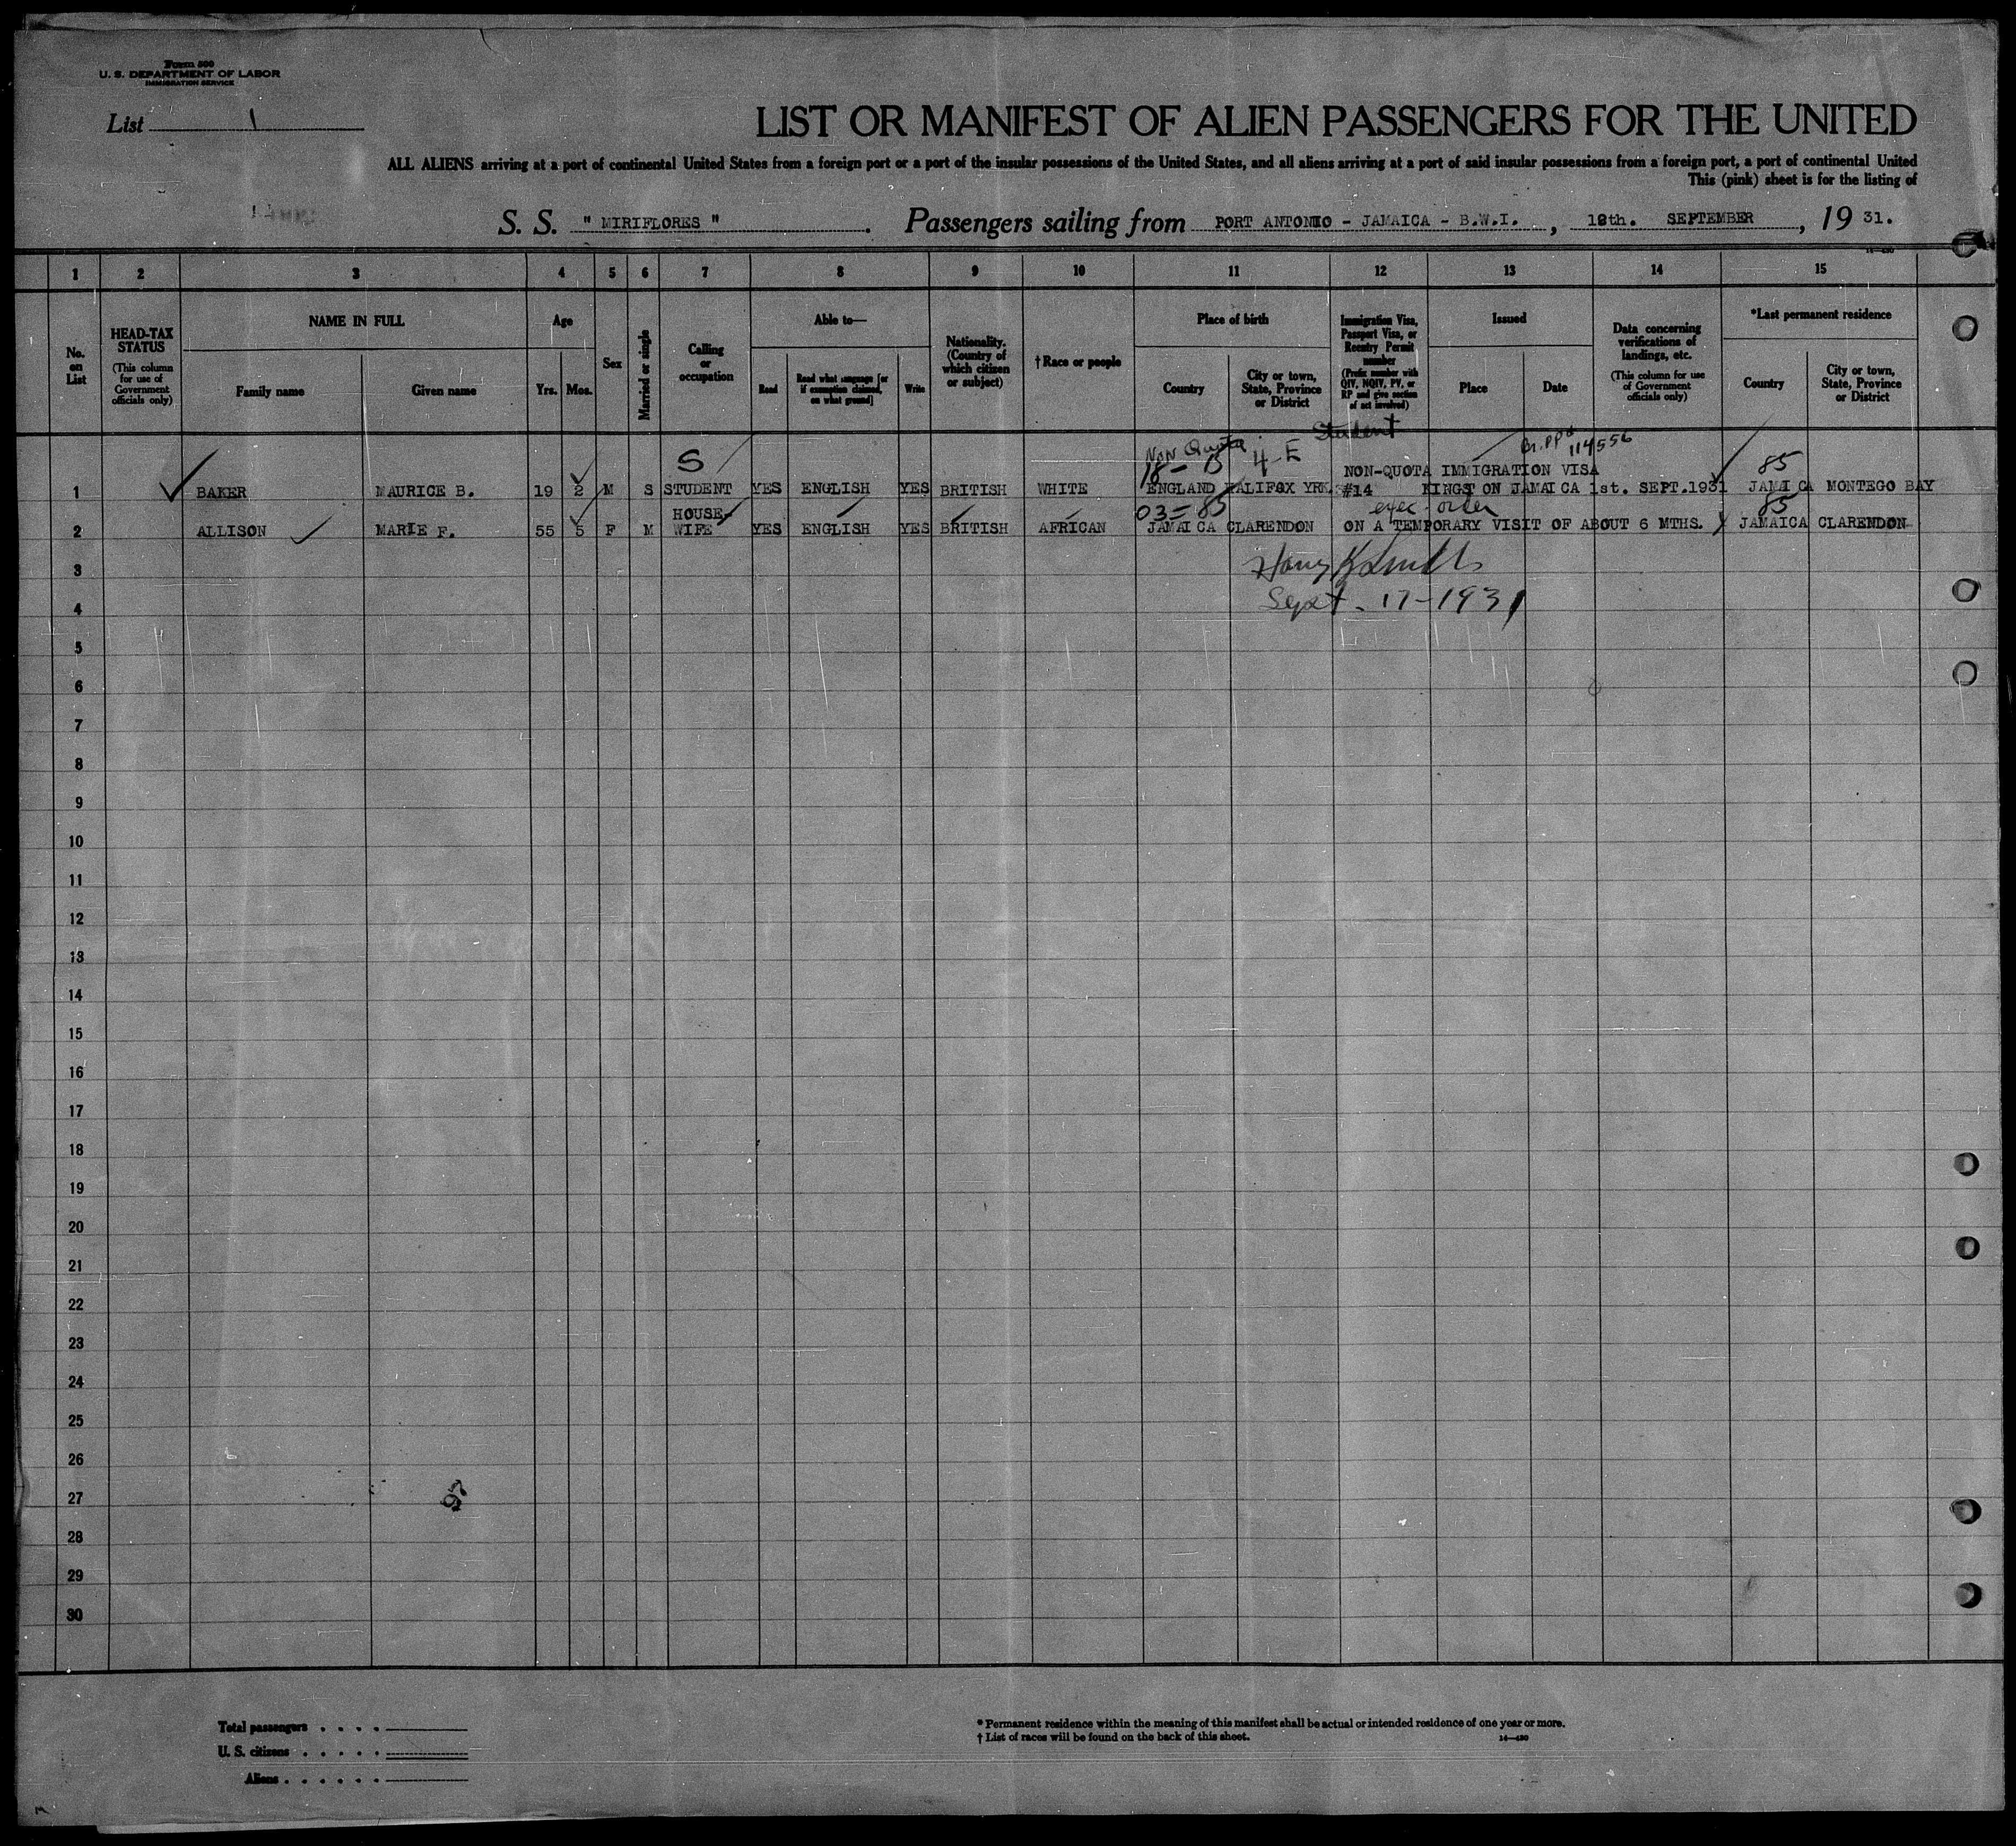 Form 500
U. S. DEPARTMENT OF LABOR
IMMIGRATION SERVICE
List 1
LIST OR MANIFEST OF ALIEN PASSENGERS FOR THE UNITED
ALL ALIENS arriving at a port of continental United States from a foreign port or a port of the insular possessions of the United States, and all aliens arriving at a port of said insular possessions from a foreign port, a port of continental United
This (pink) sheet is for the listing of
S. S. " MIRIFLORES ". Passengers sailing from PORT ANTONIO - JAMAICA - B.W.I. , 12th. SEPTEMBER , 19 31.
1 2 3 4 5 6 7 8 9 10 11 12 13 14 15
No. on List
HEAD-TAX STATUS
(This column for use of Government officials only)
NAME IN FULL
Family name
Given name
Age
Yrs. Mos.
Sex
Married or single
Calling or occupation
Able to—
Read
Read what language [or if exemption claimed, on what ground]
Write
Nationality. (Country of which citizen or subject)
† Race or people
Place of birth
Country
City or town, State, Province or District
Immigration Visa, Passport Visa, or Reentry Permit number
(Prefix number with QIV, NQIV, PV, or RP and give section of act involved)
Issued
Place
Date
Data concerning verifications of landings, etc.
(This column for use of Government officials only)
*Last permanent residence
Country
City or town, State, Province or District
Student
Non Quota 4-E
114556
S
85
NON-QUOTA IMMIGRATION VISA
1 BAKER MAURICE B. 19 2 M S STUDENT YES ENGLISH YES BRITISH WHITE ENGLAND HALIFAX YRKS #14 KINGSTON JAMAICA 1st. SEPT.1931 JAMAICA MONTEGO BAY
03=85 exec order 85
2 ALLISON MARIE F. 55 5 F M HOUSE-WIFE YES ENGLISH YES BRITISH AFRICAN JAMAICA CLARENDON ON A TEMPORARY VISIT OF ABOUT 6 MTHS. JAMAICA CLARENDON
3
4 Sept. 17-1931
5
6
7
8
9
10
11
12
13
14
15
16
17
18
19
20
21
22
23
24
25
26
27
28
29
30
Total passengers
U. S. citizens
Aliens
* Permanent residence within the meaning of this manifest shall be actual or intended residence of one year or more.
† List of races will be found on the back of this sheet.
14—430